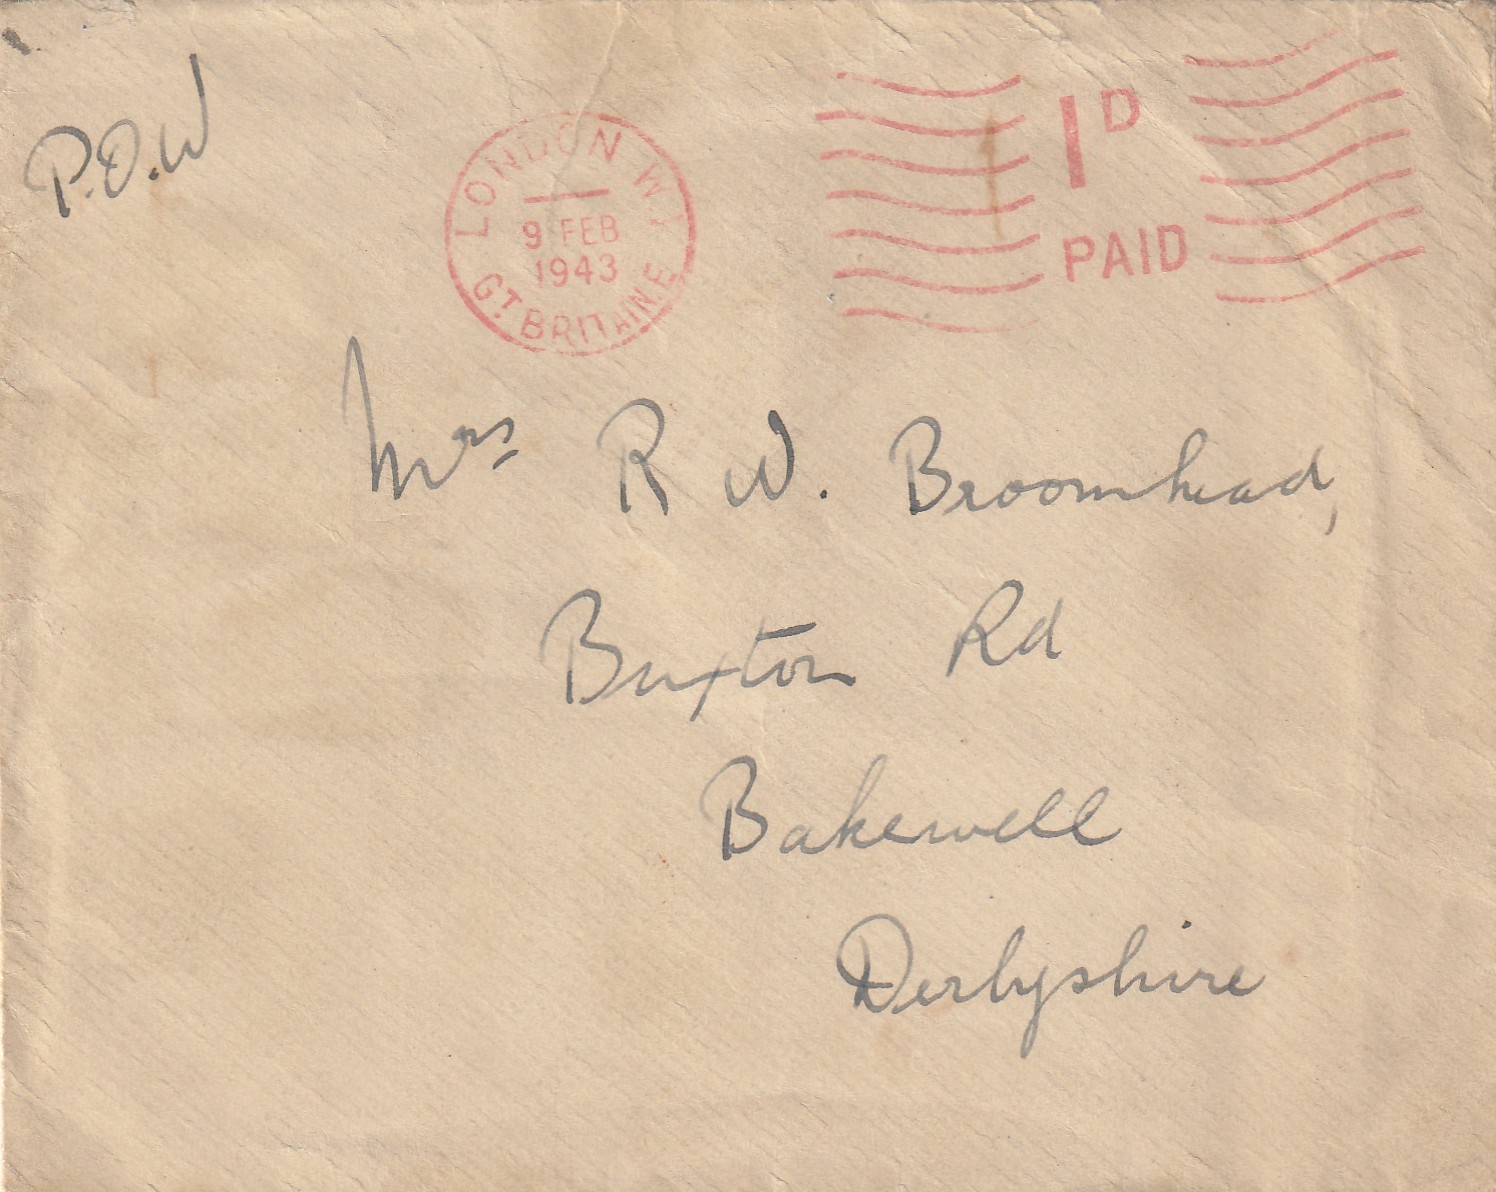 P.O.W
LONDON W1
9 FEB
1943
GT. BRITAIN.E
1D
PAID
Mrs R W. Broomhead,
Buxton Rd
Bakewell
Derbyshire